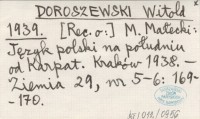 DOROSZEWSKI Witold
1939. [Rec. o:] M. Małecki:
Język polski na południu
od Karpat. Kraków 1938. –
Ziemia 29, nr 5-6: 169-
-170.